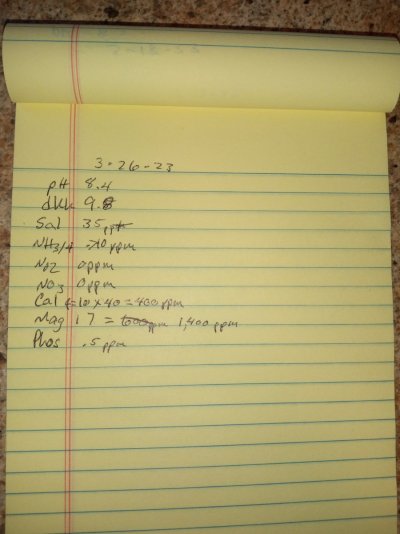 3-26-23
pH 8.4
dkh 9.8
Sal 35 ppt
NH3/4 0 ppm
NO2 0 ppm
NO3 0 ppm
Cal 10 x 40 = 400 ppm
Mag 17 = 1,400 ppm
Phos .5 ppm